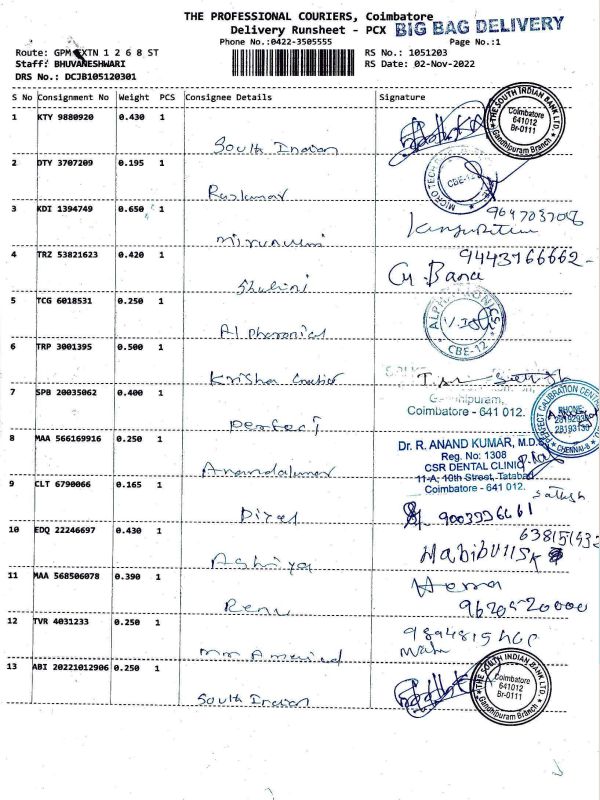 THE PROFESSIONAL COURIERS, Coimbatore
Delivery Runsheet - PCX BIG BAG DELIVERY
Phone No.:0422-3505555 Page No.:1
Route: GPM EXTN 1 2 6 8 ST RS No.: 1051203
Staff: BHUVANESHWARI RS Date: 02-Nov-2022
DRS No.: DCJB105120301
S No Consignment No Weight PCS Consignee Details Signature
1 KTY 9880920 0.430 1
South Indian
THE SOUTH INDIAN BANK LTD. Coimbatore 641012 Br-0111 Gandhipuram Branch
2 DTY 3707209 0.195 1
Raskumar
MICRO TECH CBE-12
3 KDI 1394749 0.650 1
4 TRZ 53821623 0.420 1
9443166662
Shalini
5 TCG 6018531 0.250 1
ALPHA CBE-12
6 TRP 3001395 0.500 1
Krisha Courier
7 SPB 20035062 0.400 1
Gandhipuram,
Coimbatore - 641 012.
Perfect
PERFECT CALIBRATION CENTRE PHONE CHENNAI-8
8 MAA 566169916 0.250 1
Dr. R. ANAND KUMAR, M.D.S
Reg. No: 1308
CSR DENTAL CLINIC
11-A, 10th Street, Tatabad
Coimbatore - 641 012.
Anandakumar
9 CLT 6790066 0.165 1
Sathish
10 EDQ 22246697 0.430 1
Habibulls
11 MAA 568506078 0.390 1
Hema
Renu
9620520000
12 TVR 4031233 0.250 1
13 ABI 20221012906 0.250 1
South Indian
THE SOUTH INDIAN BANK LTD. Coimbatore 641012 Br-0111 Gandhipuram Branch